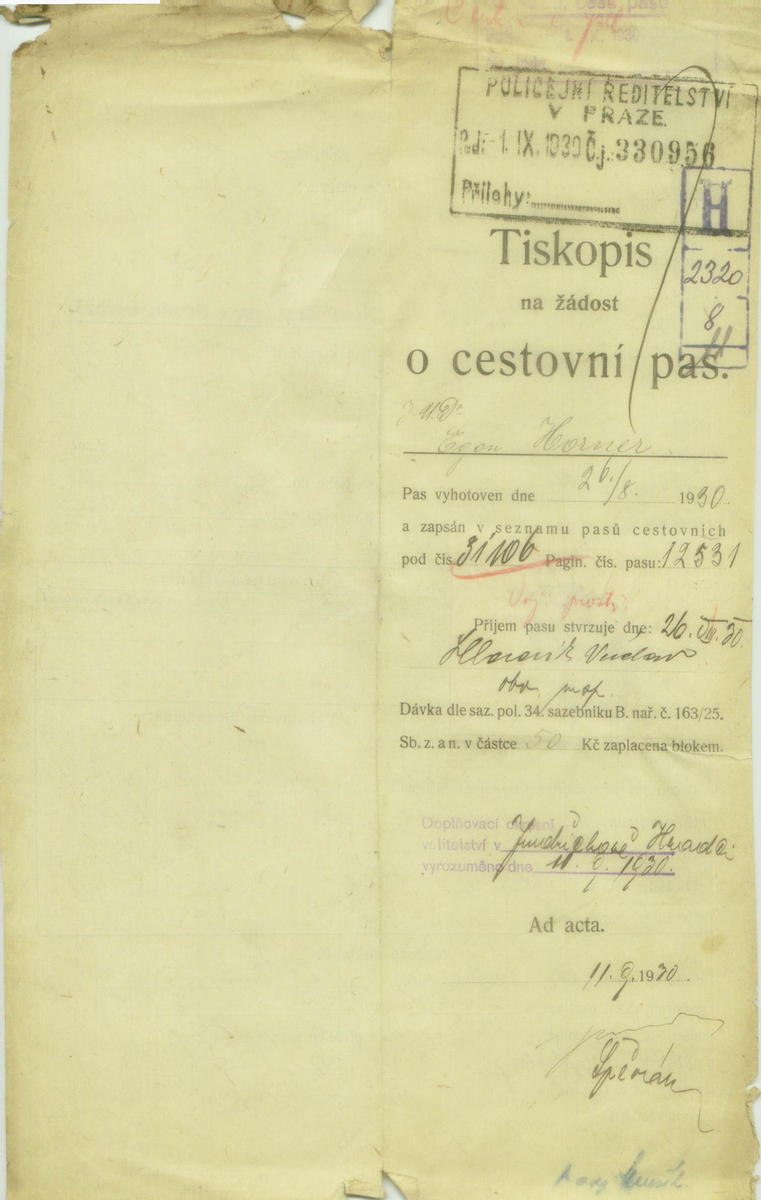 POLICEJNÍ ŘEDITELSTVÍ
V PRAZE.
1. IX. 1930 Čj. 330956
Přílohy:
H
2320
8
11
Tiskopis
na žádost
o cestovní pas.
JUDr
Egon Horner
Pas vyhotoven dne 26./8. 1930.
a zapsán v seznamu pasů cestovních
pod čís. 31106 Pagin. čís. pasu: 12531
Příjem pasu stvrzuje dne: 26. VIII. 30.
Dávka dle saz. pol. 34. sazebníku B. nař. č. 163/25.
Sb. z. a n. v částce 50 Kč zaplacena blokem.
Doplňovací okresní
velitelství v Jindřichově Hradci
vyrozuměno dne 11. 9. 1930.
Ad acta.
11. 9. 1930.